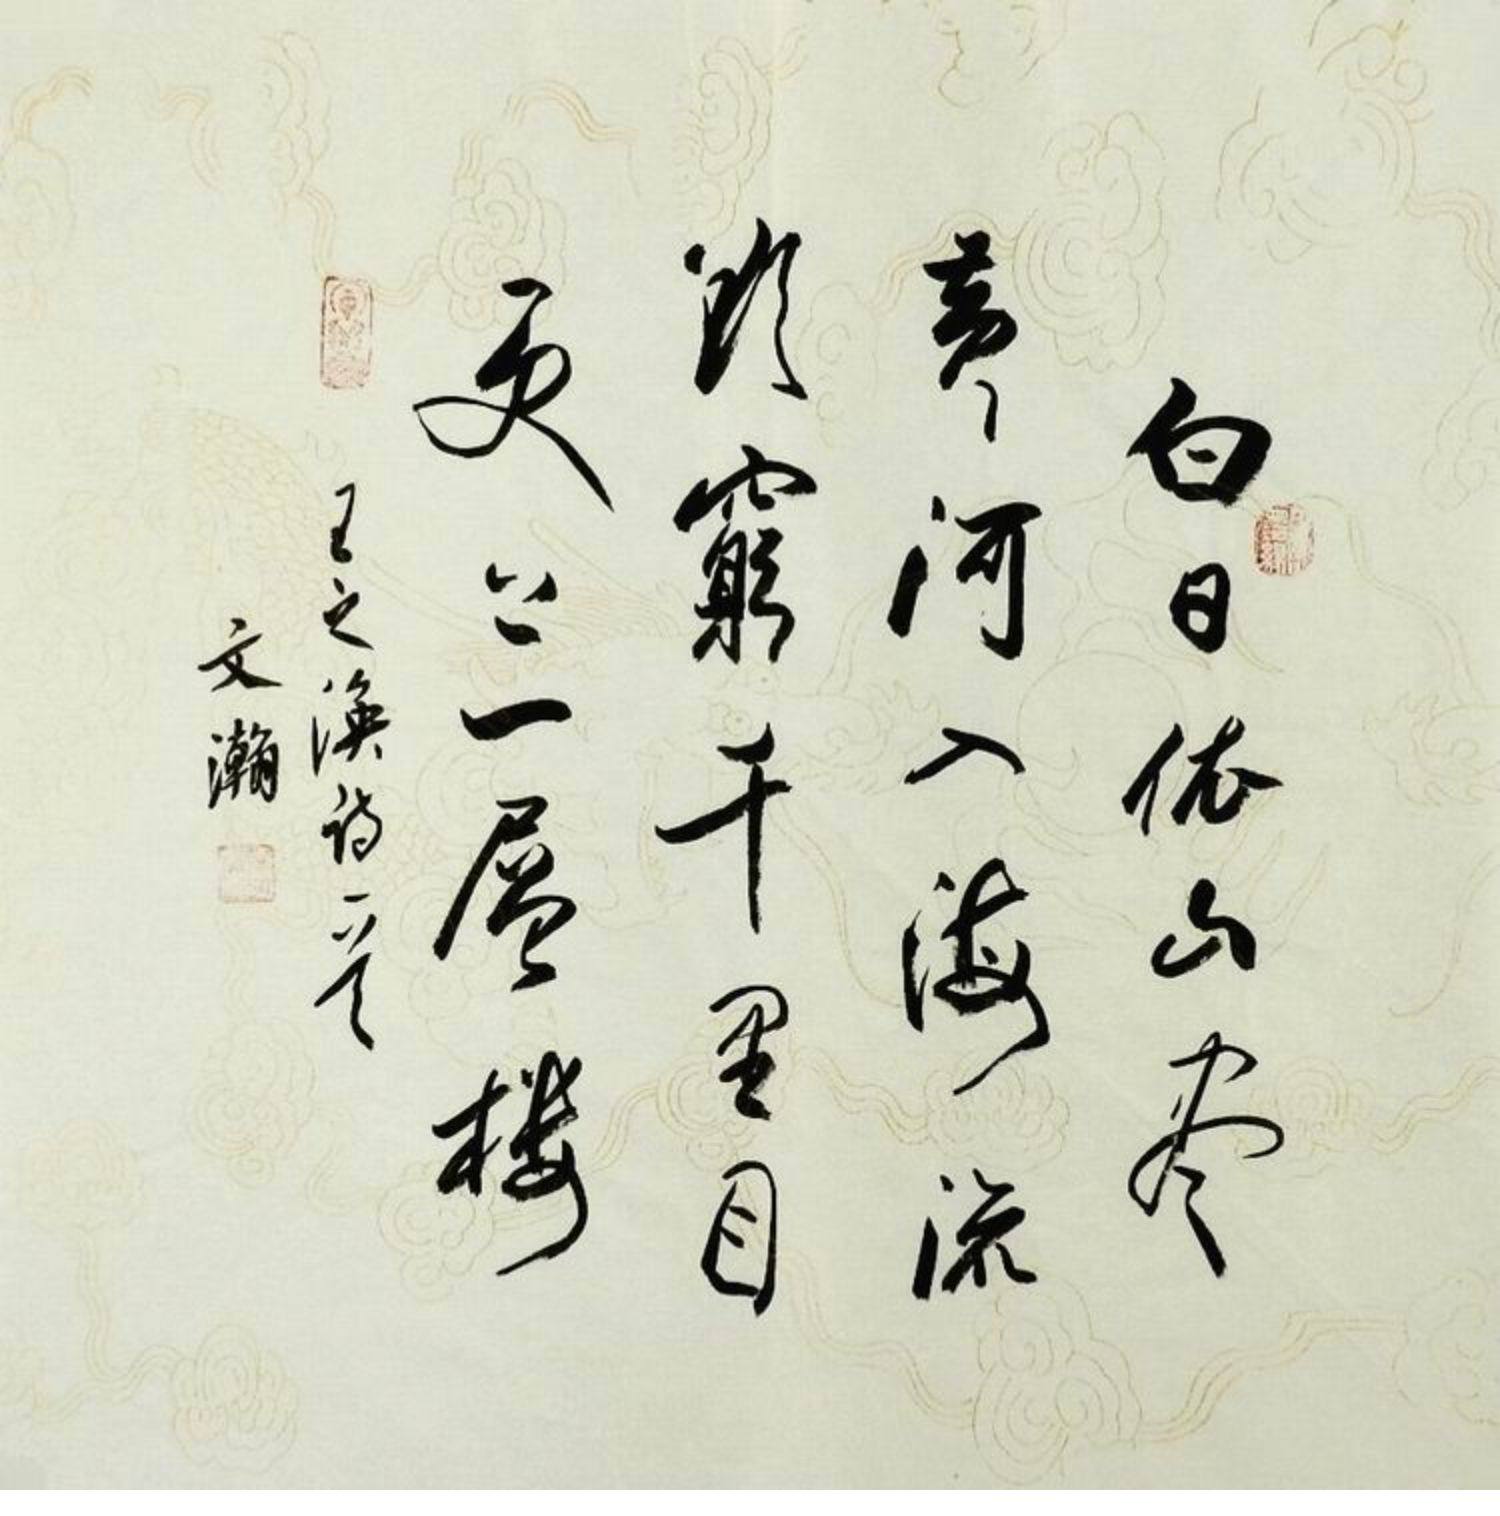 白日依山尽
黄河入海流
欲穷千里目
更上一层楼
王之涣诗一首
文瀚